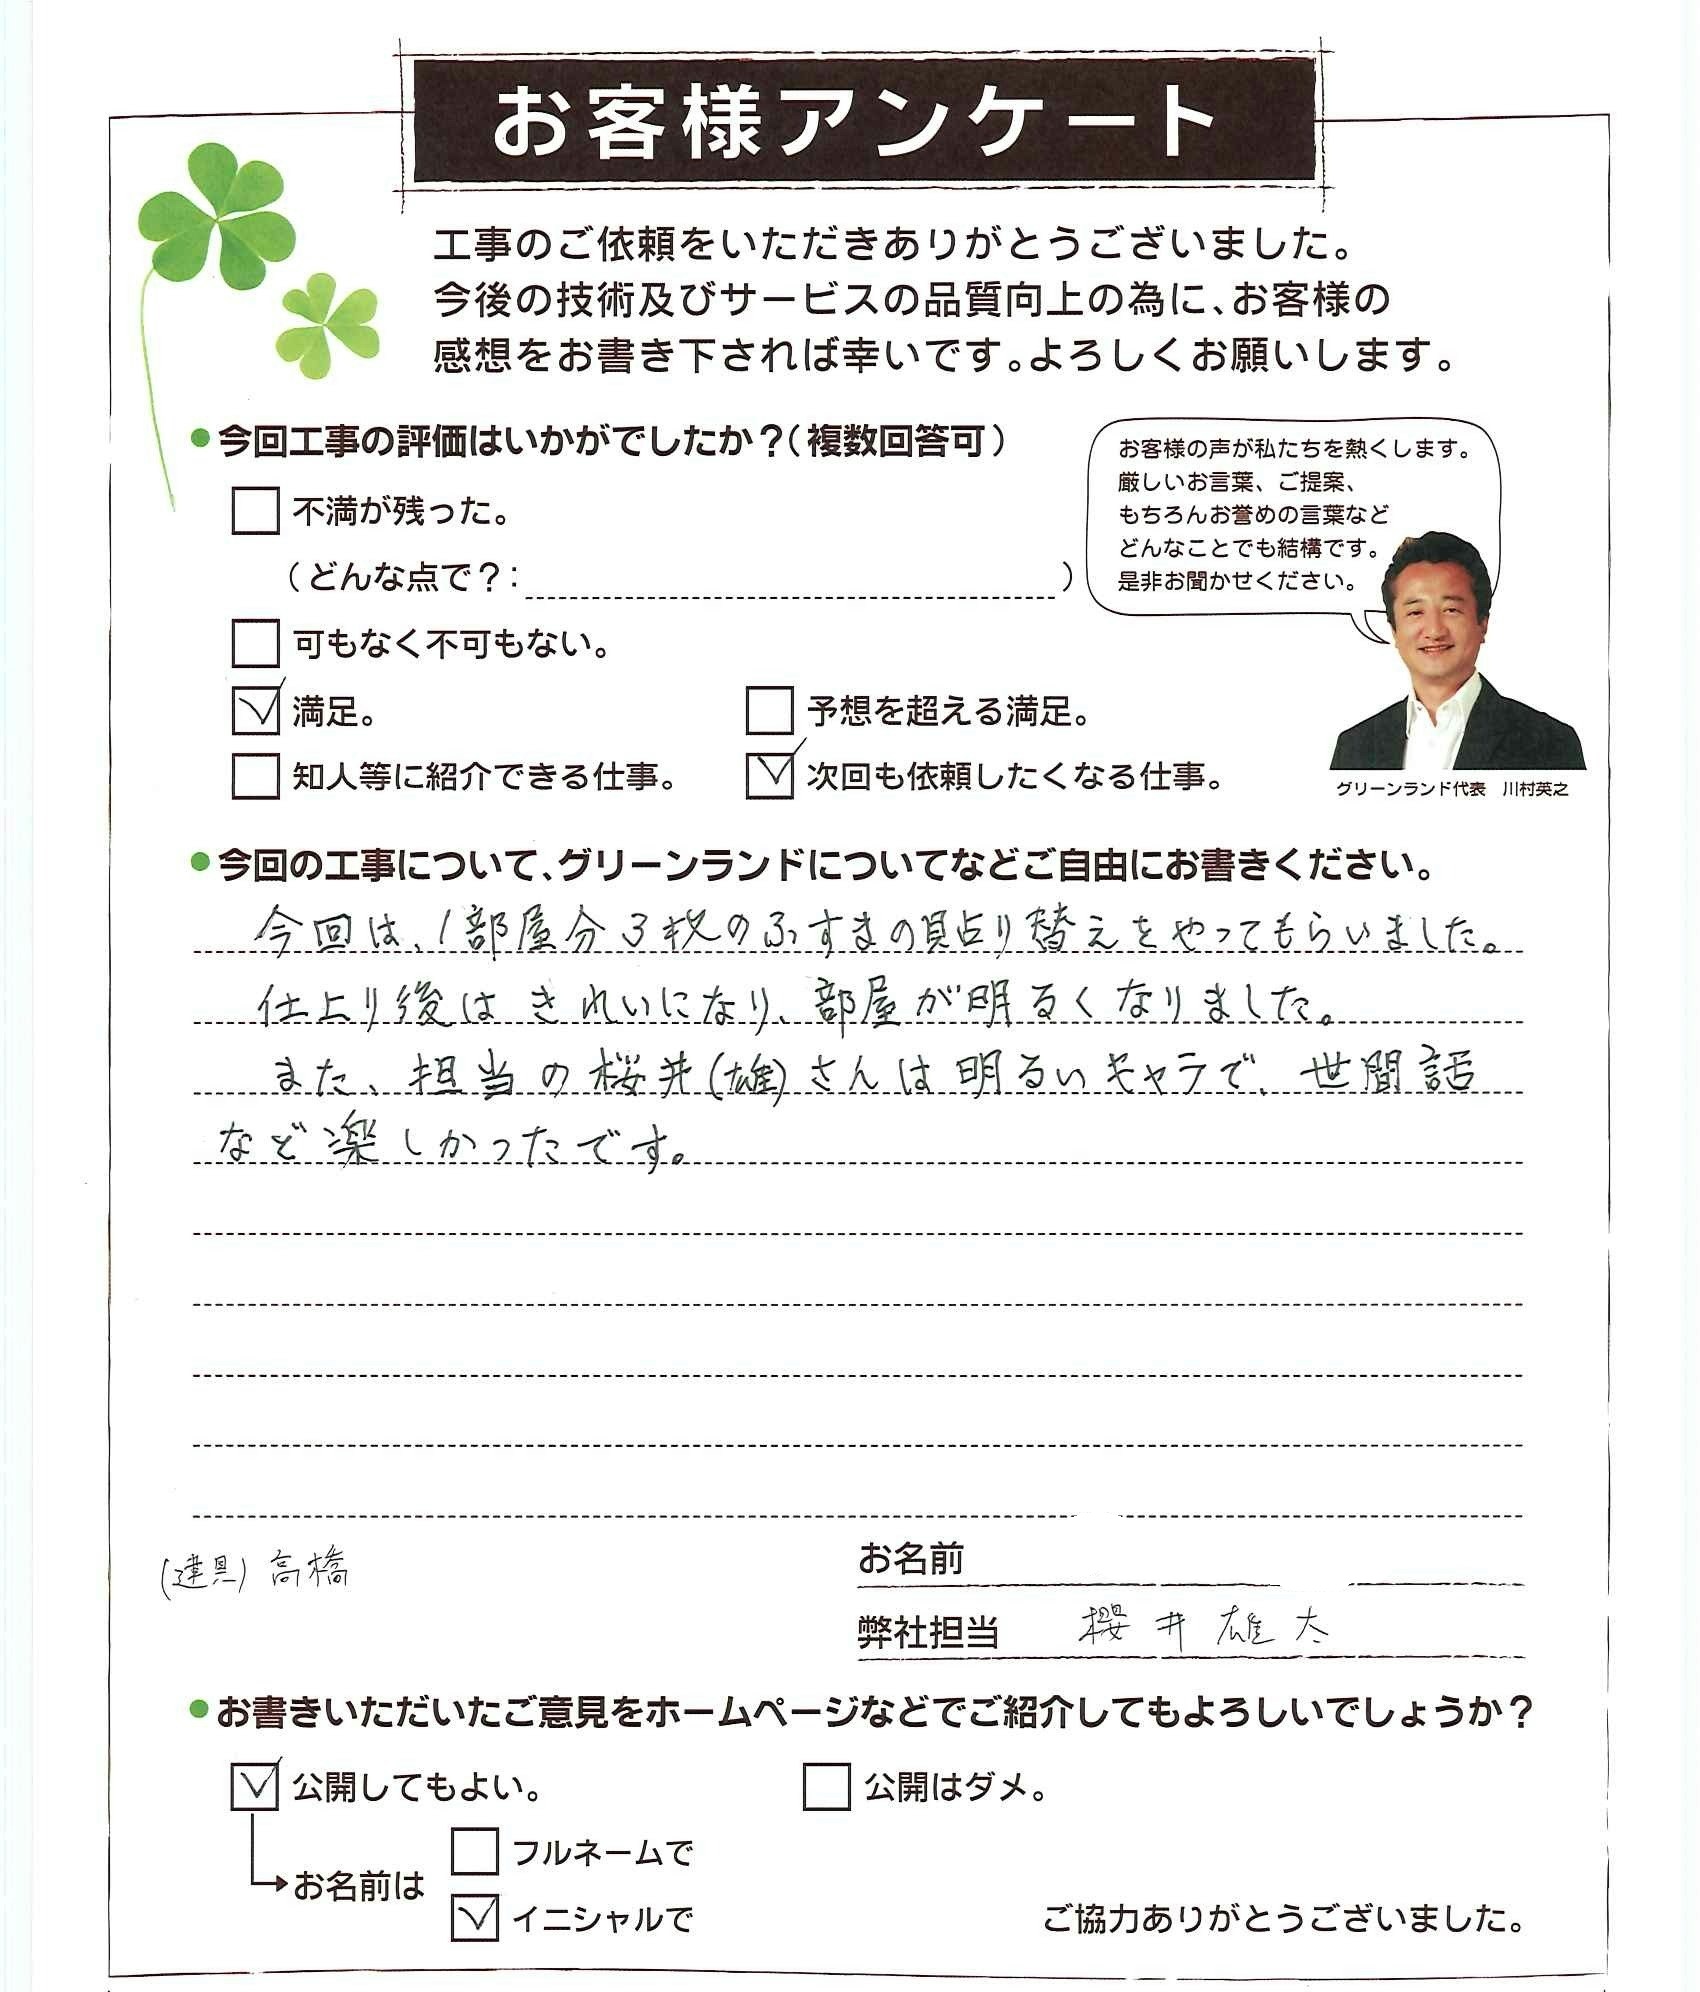 お客様アンケート
工事のご依頼をいただきありがとうございました。
今後の技術及びサービスの品質向上の為に、お客様の
感想をお書き下されば幸いです。よろしくお願いします。
●今回工事の評価はいかがでしたか？（複数回答可）
不満が残った。
（どんな点で？：　）
可もなく不可もない。
満足。
予想を超える満足。
知人等に紹介できる仕事。
次回も依頼したくなる仕事。
お客様の声が私たちを熱くします。
厳しいお言葉、ご提案、
もちろんお誉めの言葉など
どんなことでも結構です。
是非お聞かせください。
グリーンランド代表　川村英之
●今回の工事について、グリーンランドについてなどご自由にお書きください。
今回は、1部屋分3枚のふすまの貼り替えをやってもらいました。
仕上り後はきれいになり、部屋が明るくなりました。
また、担当の桜井(雄)さんは明るいキャラで、世間話
など楽しかったです。
(建具)高橋
お名前
弊社担当　櫻井雄太
●お書きいただいたご意見をホームページなどでご紹介してもよろしいでしょうか？
公開してもよい。
公開はダメ。
お名前は
フルネームで
イニシャルで
ご協力ありがとうございました。